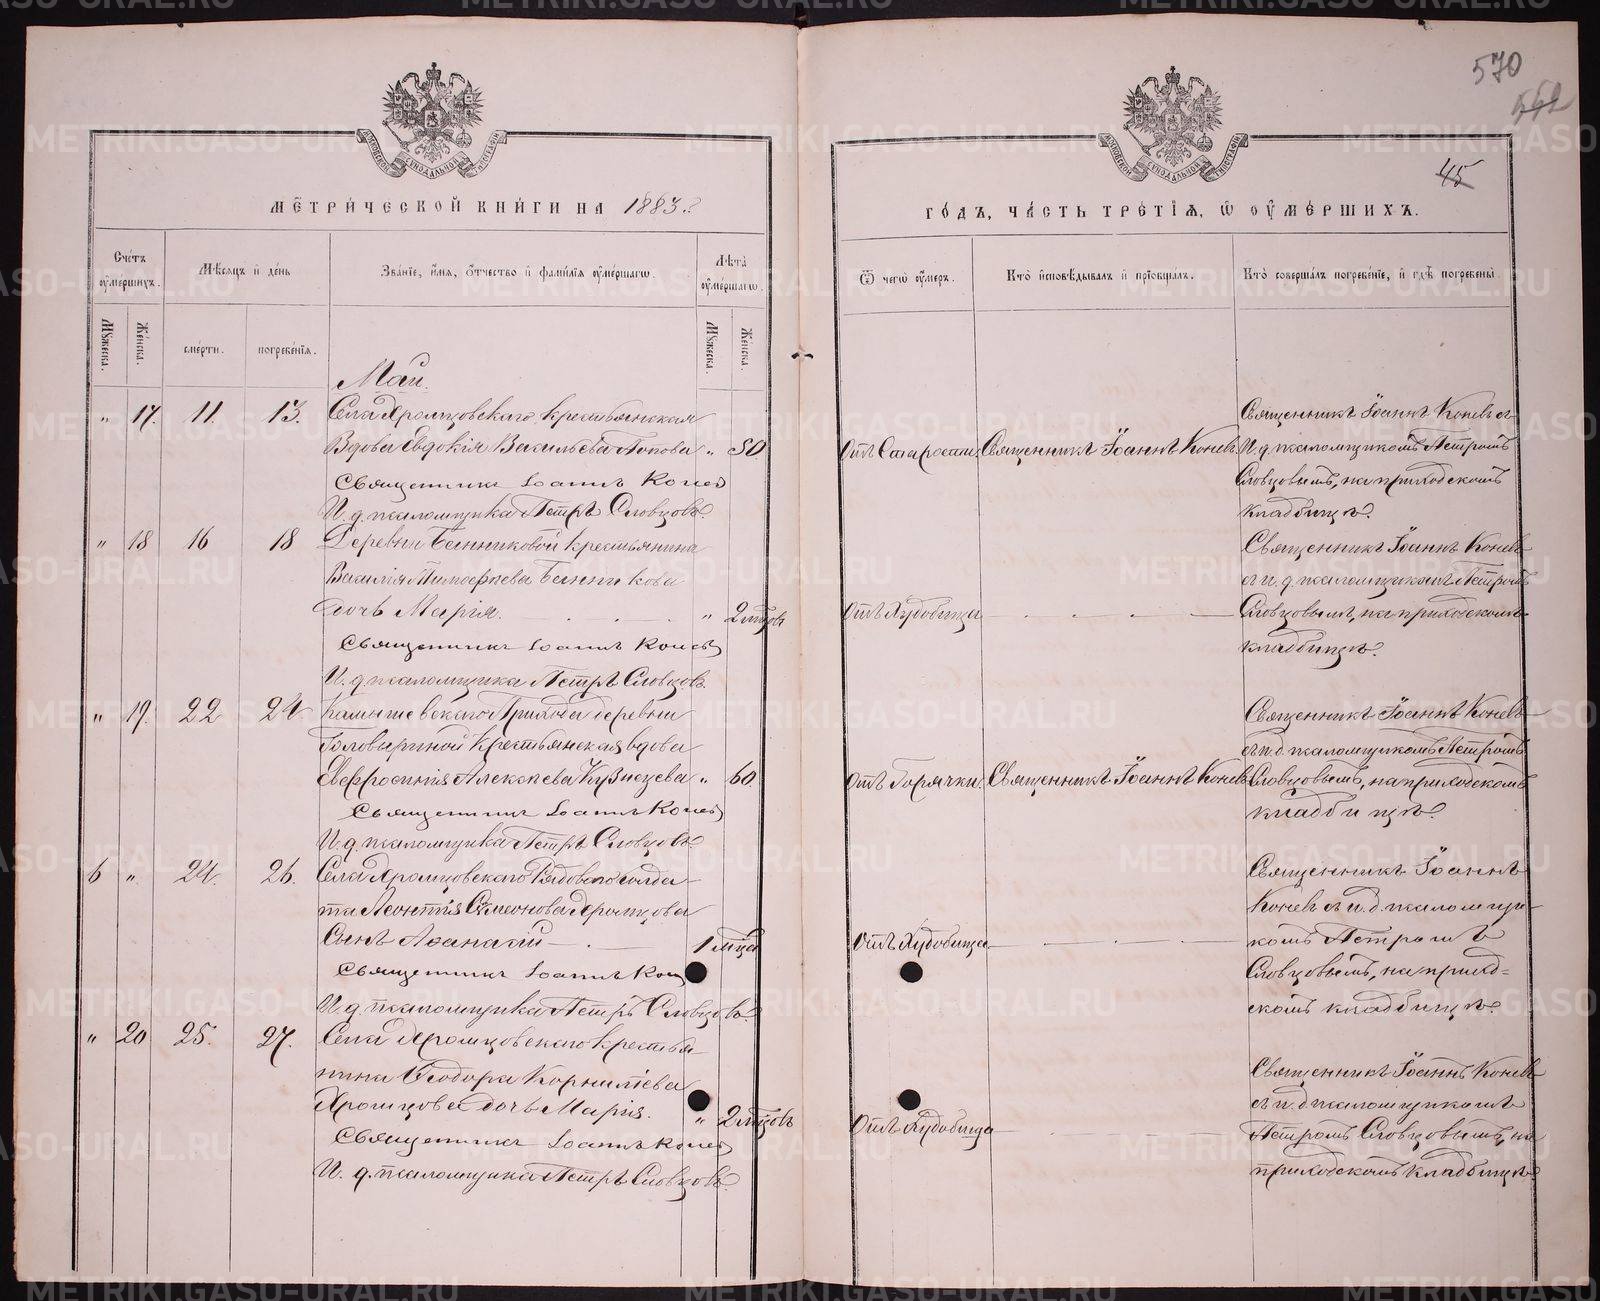 570
562
45
МЕТРИЧЕСКОЙ КНИГИ НА 1883 г
ГОДЪ, ЧАСТЬ ТРЕТІЯ, Ѽ ОУМЕРШИХЪ.
Счетъ оумершихъ.
Мѣсяцъ и день
Званіе, имя, ѿчество и фамилія оумершагѡ.
Лѣта оумершагѡ.
Мꙋжеска.
Женска.
смерти.
погребенія.
Мꙋжеска.
Женска.
Ѿ чегѡ оумеръ.
Кто исповѣдывалъ и пріобщалъ.
Кто совершалъ погребеніе, и гдѣ погребены.
Май.
" 17. 11. 13. Села Хромцовскаго крестьянская
Вдова Евдокія Васильева Попова " 80.
Священникъ Іоаннъ Коневъ
И. д. псаломщика Петръ Словцовъ.
Отъ Старости. Священникъ Іоаннъ Коневъ
Священникъ Іоаннъ Коневъ съ
И. д. псаломщикомъ Петромъ
Словцовымъ, на приходскомъ
кладбищѣ.
" 18 16 18 Деревни Банниковой крестьянина
Василія Тимофеева Банникова
дочь Марія. " 2 мцовъ
Священникъ Іоаннъ Коневъ
И. д. псаломщика Петръ Словцовъ.
Отъ Худобища
Священникъ Іоаннъ Коневъ
съ и. д. псаломщикомъ Петромъ
Словцовымъ, на приходскомъ
кладбищѣ.
" 19. 22 24. Камышевскаго Прихода деревни
Головыриной Крестьянская вдова
Евфросинія Алексѣева Кузнецова " 60.
Священникъ Іоаннъ Коневъ
И. д. псаломщика Петръ Словцовъ.
Отъ Горячки. Священникъ Іоаннъ Коневъ
Священникъ Іоаннъ Коневъ
съ и. д. псаломщикомъ Петромъ
Словцовымъ, на приходскомъ
кладбищѣ.
6 " 24. 26. Села Хромцовскаго Рядоваго солда-
та Леонтія Симеонова Хромцова
Сынъ Аѳанасій 1 мца
Священникъ Іоаннъ Кон
И. д. псаломщика Петръ Словцовъ.
Отъ Худобища
Священникъ Іоаннъ
Коневъ съ и. д. псаломщи-
комъ Петромъ
Словцовымъ, на приход-
скомъ кладбищѣ.
" 20 25. 27. Села Хромцовскаго крестья-
нина Ѳеодора Корниліева
Хромцова дочь Марія. " 2 мцовъ
Священникъ Іоаннъ Коневъ
И. д. псаломщика Петръ Словцовъ.
Отъ Худобища
Священникъ Іоаннъ Коневъ
съ и. д. псаломщикомъ
Петромъ Словцовымъ, на
приходскомъ кладбищѣ.
METRIKI.GASO-URAL.RU